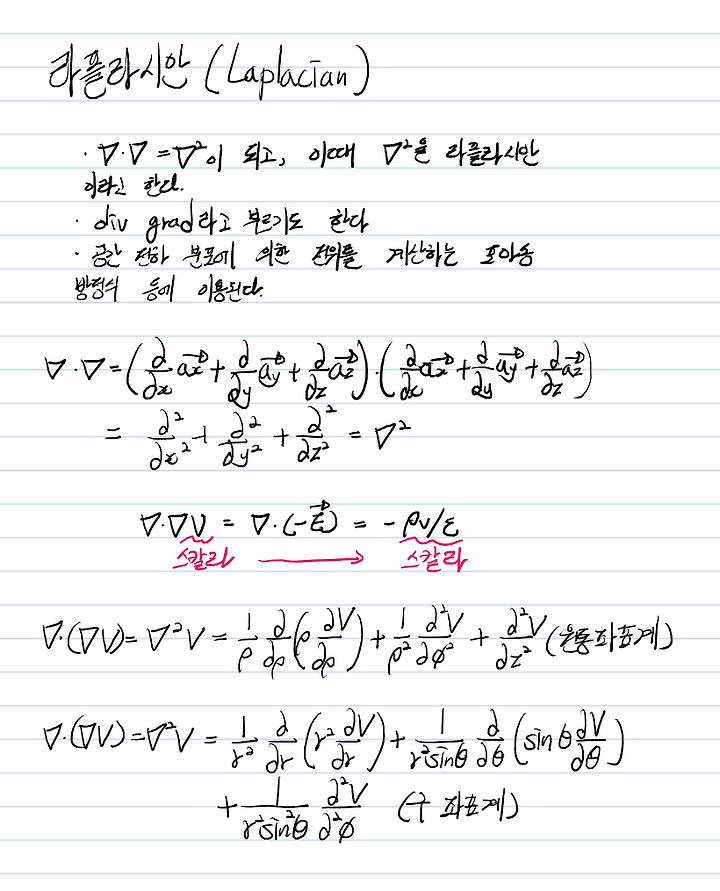 라플라시안 (Laplacian)
· ∇·∇ = ∇²이 되고, 이때 ∇²을 라플라시안
이라고 한다.
· div grad라고 부르기도 한다
· 공간 전하 분포에 의한 전위를 계산하는 포아송
방정식 등에 이용된다.
∇·∇ = (∂/∂x a⃗x + ∂/∂y a⃗y + ∂/∂z a⃗z)·(∂/∂x a⃗x + ∂/∂y a⃗y + ∂/∂z a⃗z)
= ∂²/∂x² + ∂²/∂y² + ∂²/∂z² = ∇²
∇·∇V = ∇·(-E⃗) = -ρv/ε
스칼라 → 스칼라
∇·(∇V) = ∇²V = 1/ρ ∂/∂ρ (ρ ∂V/∂ρ) + 1/ρ² ∂²V/∂φ² + ∂²V/∂z² (원통좌표계)
∇·(∇V) = ∇²V = 1/r² ∂/∂r (r² ∂V/∂r) + 1/r²sinθ ∂/∂θ (sinθ ∂V/∂θ)
+ 1/r²sin²θ ∂²V/∂²φ (구 좌표계)